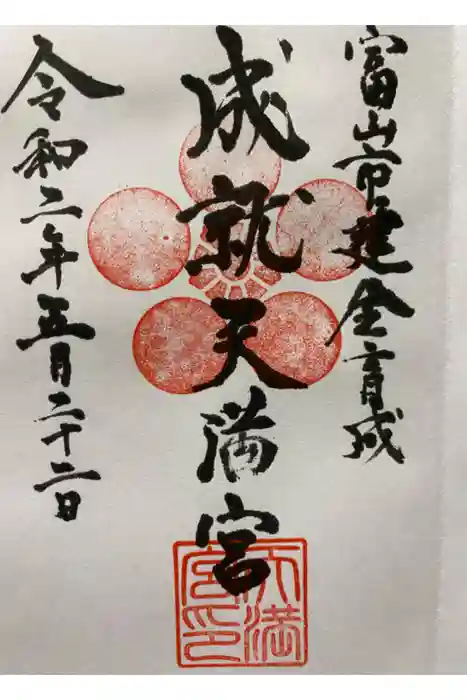 富山市建全育成
成就天満宮
令和二年五月二十二日
天満
宮印